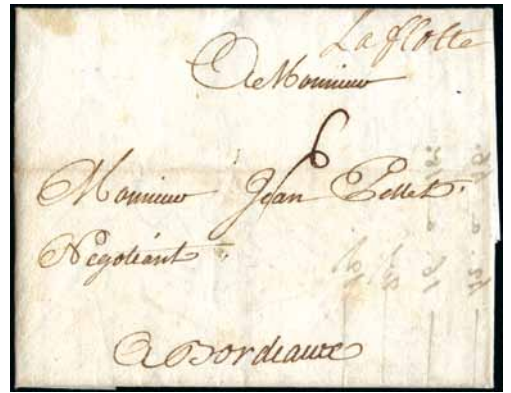 La flotte
A Monsieur
6
Monsieur Jean Pellet.
Négotiant
A Bordeaux